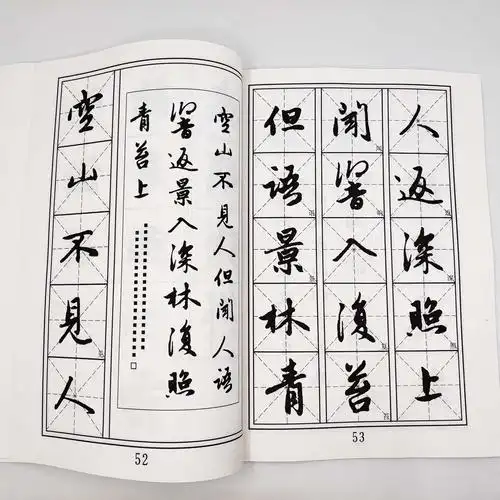 空山不見人
空山不見人但聞人語
響返景入深林復照
青苔上
52
但聞人
語響返
景入深
林復照
青苔上
53